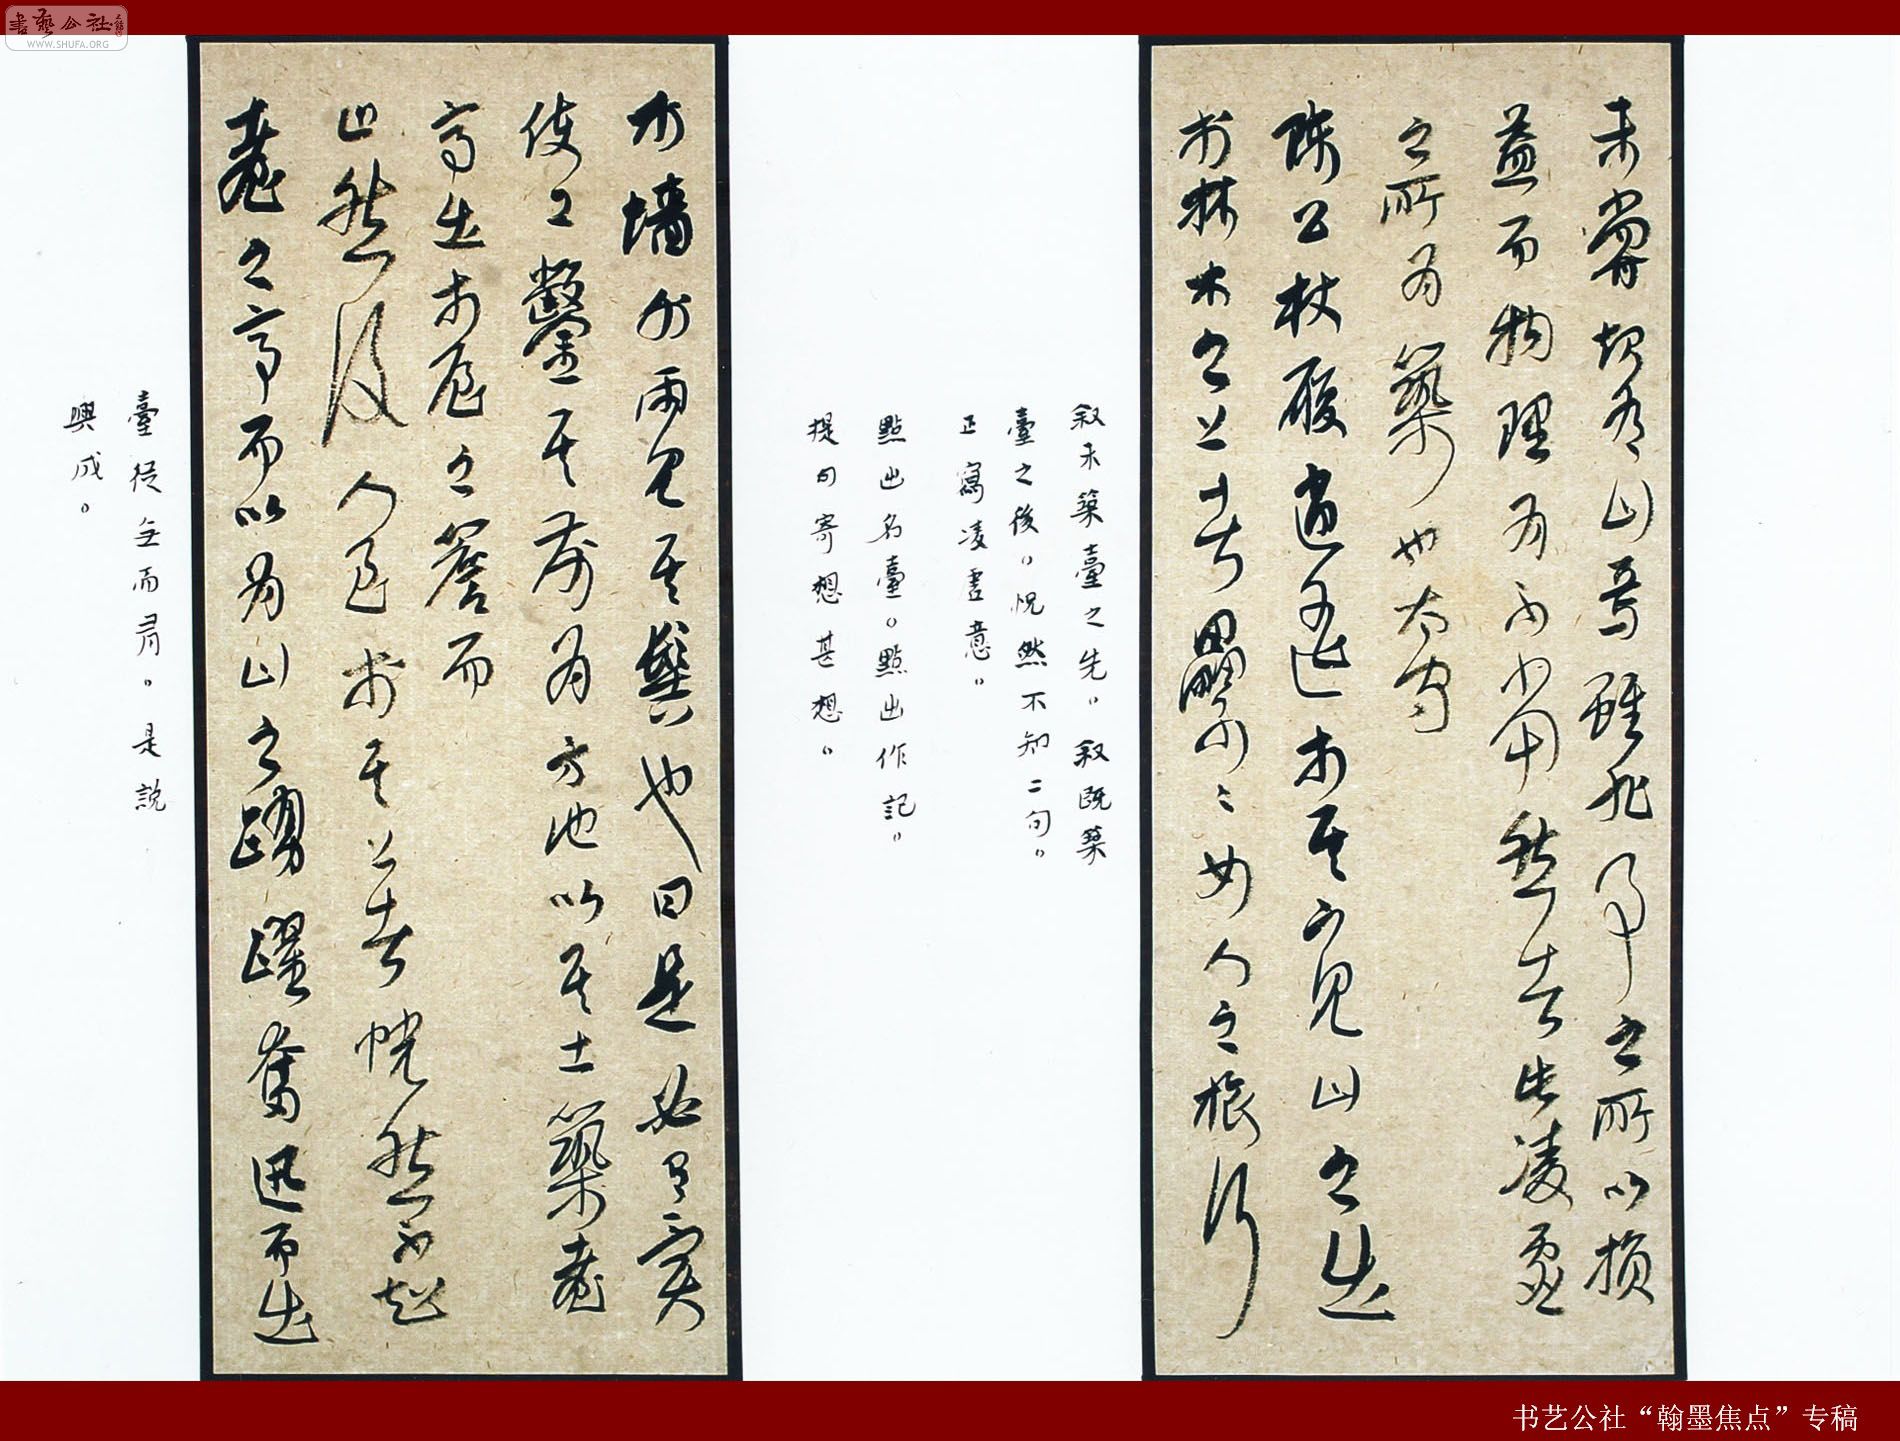 未嘗知有山焉雖非事之所以損
益而物理有不當然者此凌虛
之所為築也太守
陳公杖履逍遙於其下見山之出
於林木之上者纍纍如人之旅行
叙未築臺之先。叙既築
臺之後。怳然不知二句。
正寫凌虛意。
點出名臺。點出作記。
提句寄想甚想。
於墻外而見其髻也曰是必有異
使工鑿其前為方池以其土築臺
高出於屋之簷而
止然後人至於其上者恍然不知
臺之高而以為山之踴躍奮迅而出
臺從無而有。是說
興成。
書藝公社
WWW.SHUFA.ORG
书艺公社“翰墨焦点”专稿